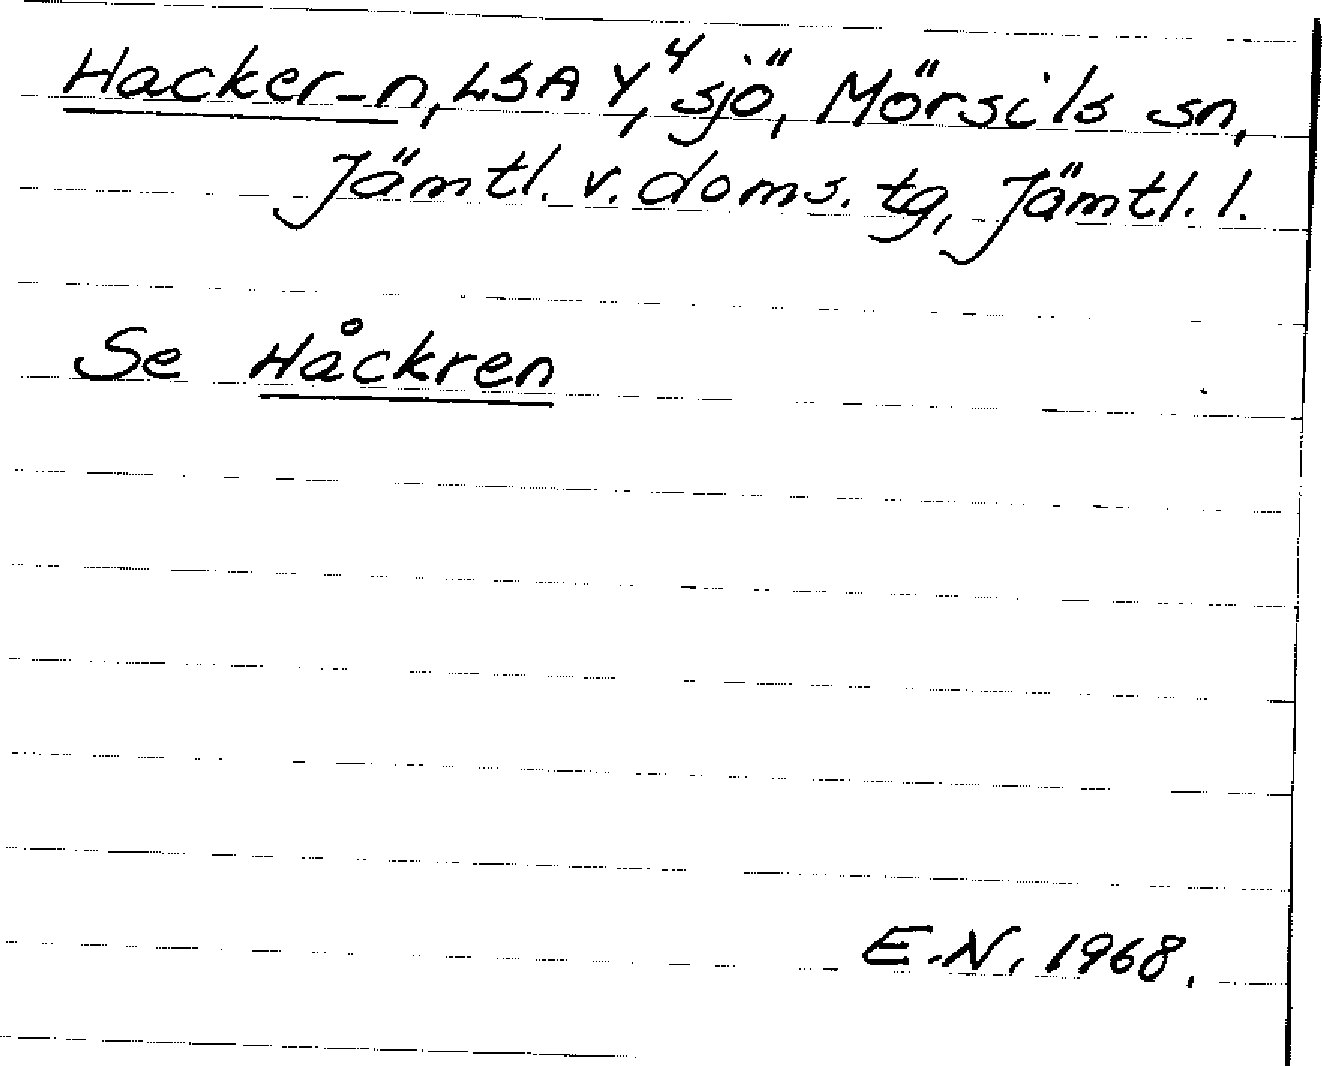 Hacker-n, LSA Y⁴, sjö, Mörsils sn,
Jämtl. v. doms. tg, Jämtl. l.
Se Håckren
E.N. 1968.